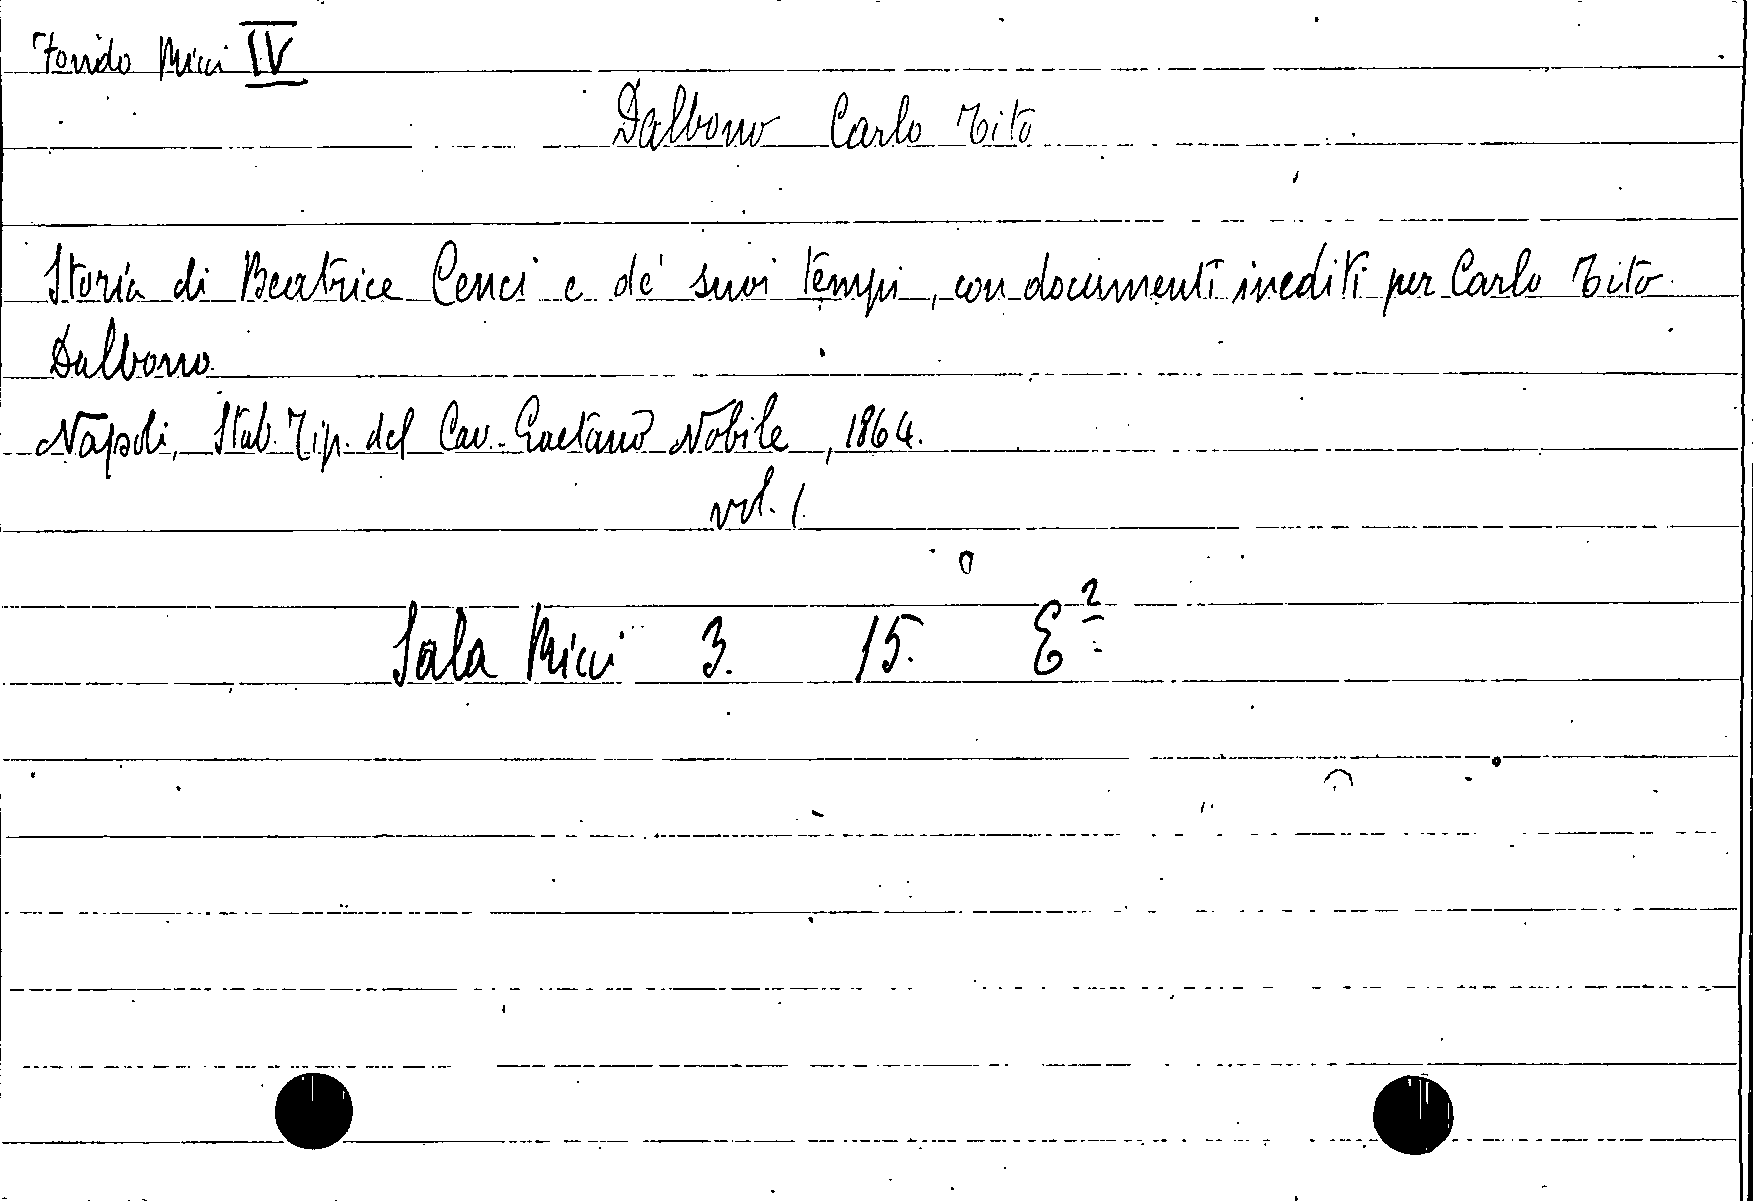 Fondo Ricci IV
Dalbono Carlo Tito
Storia di Beatrice Cenci e de' suoi tempi, con documenti inediti per Carlo Tito
Dalbono.
Napoli, Stab. Tip. del Cav. Gaetano Nobile, 1864.
vol. 1.
Sala Ricci 3. 15. E²